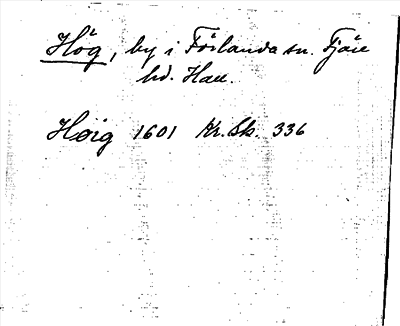 Hög, by i Förlanda sn. Fjäre
hd. Hall.
Høig 1601 Kr. Sk. 336